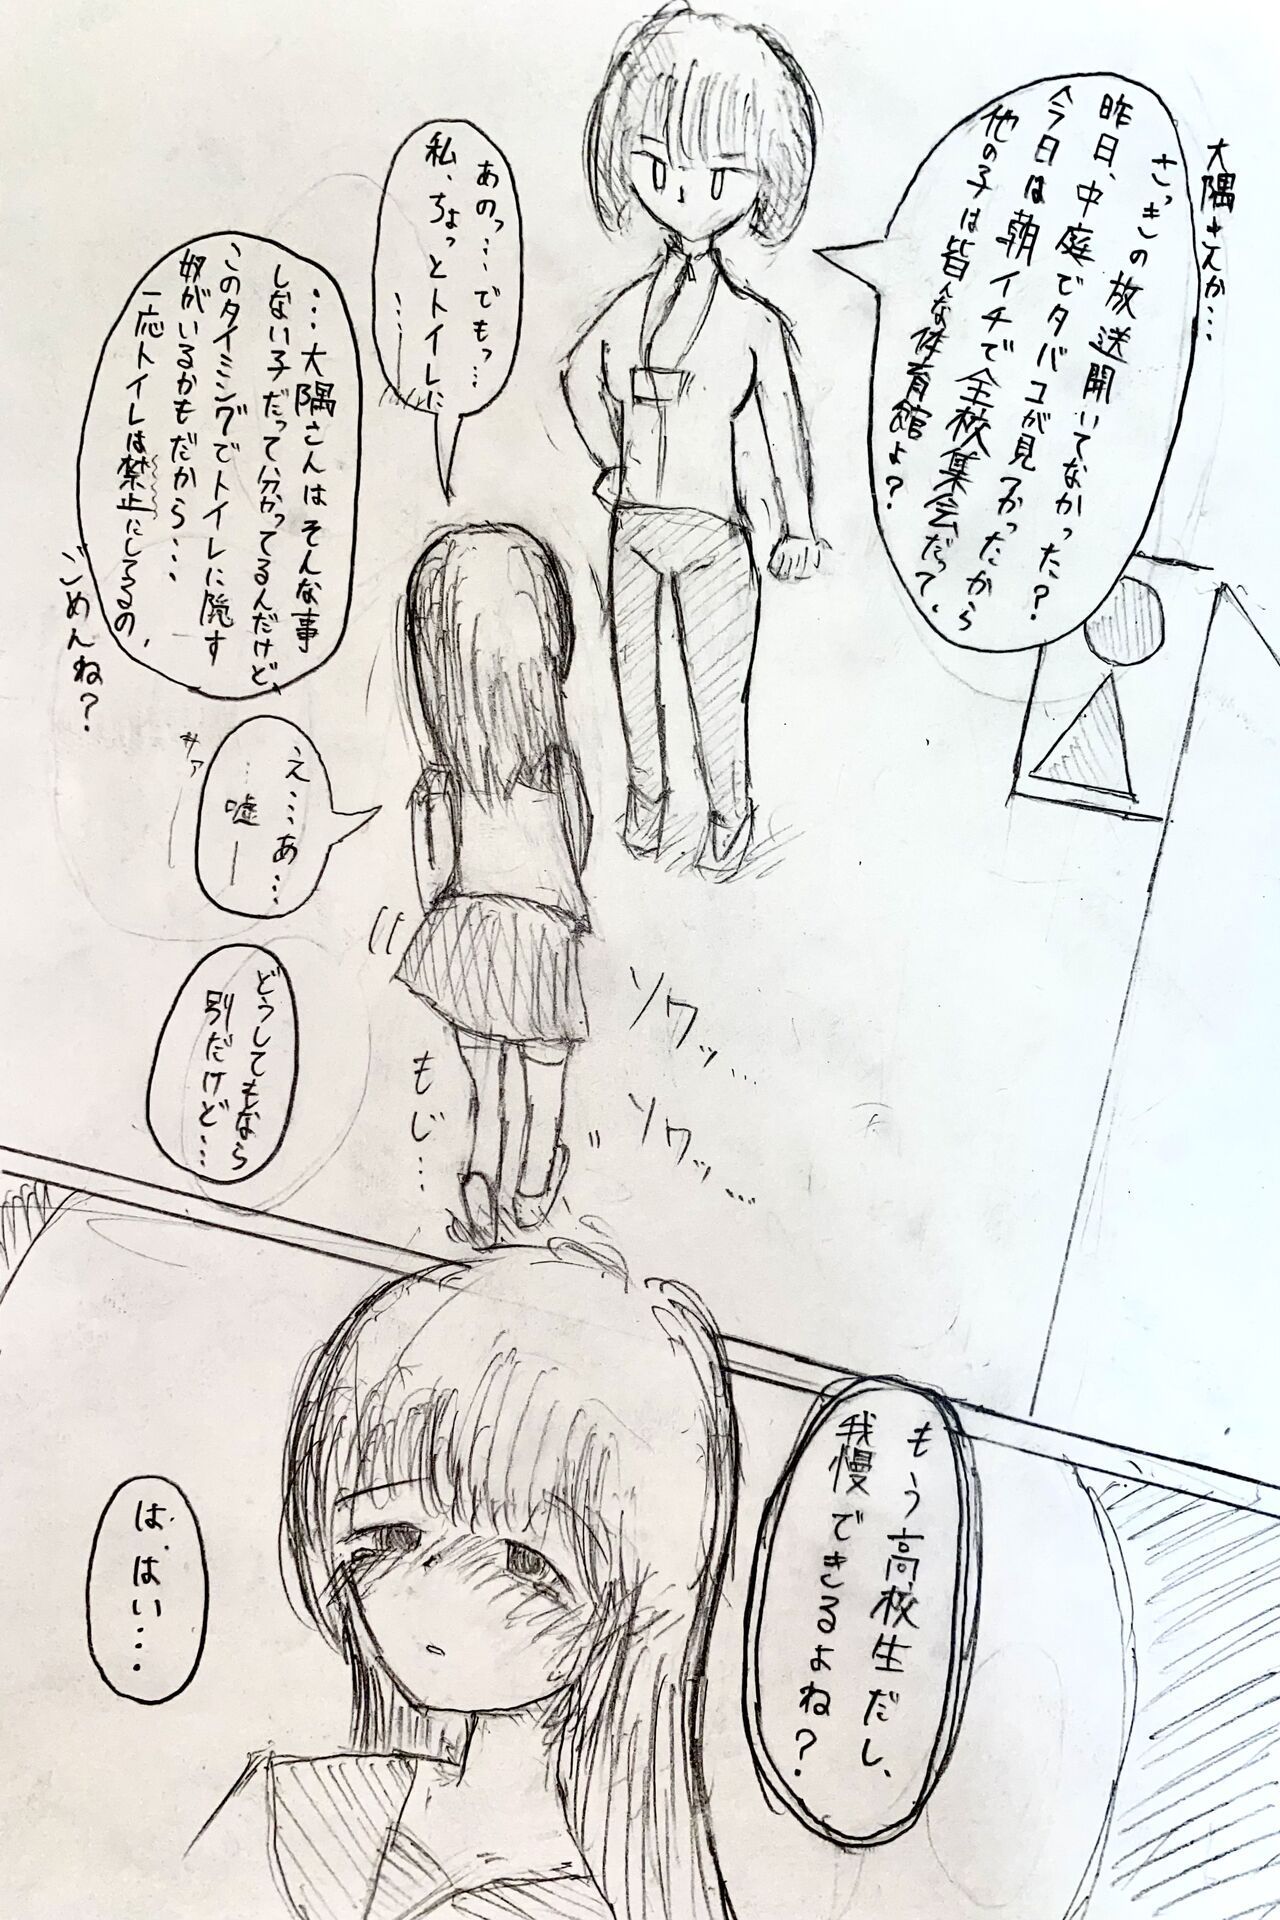 大隅さんか…
さっきの放送聞いてなかった？
昨日、中庭でタバコが見つかったから
今日は朝イチで全校集会だって、
他の子は皆んな体育館よ？
あのっ…でもっ…
私、ちょっとトイレに
……
…大隅さんはそんな事
しない子だって分かってるんだけど、
このタイミングでトイレに隠す
奴がいるかもだから…
一応トイレは禁止にしてるの、
ゴめんね？
え…あ…
…嘘ー
サァ
どうしてもなら
別だけど…
ソワッ…
ソワッ…
もじ…
もう高校生だし、
我慢できるよね？
は、はい…